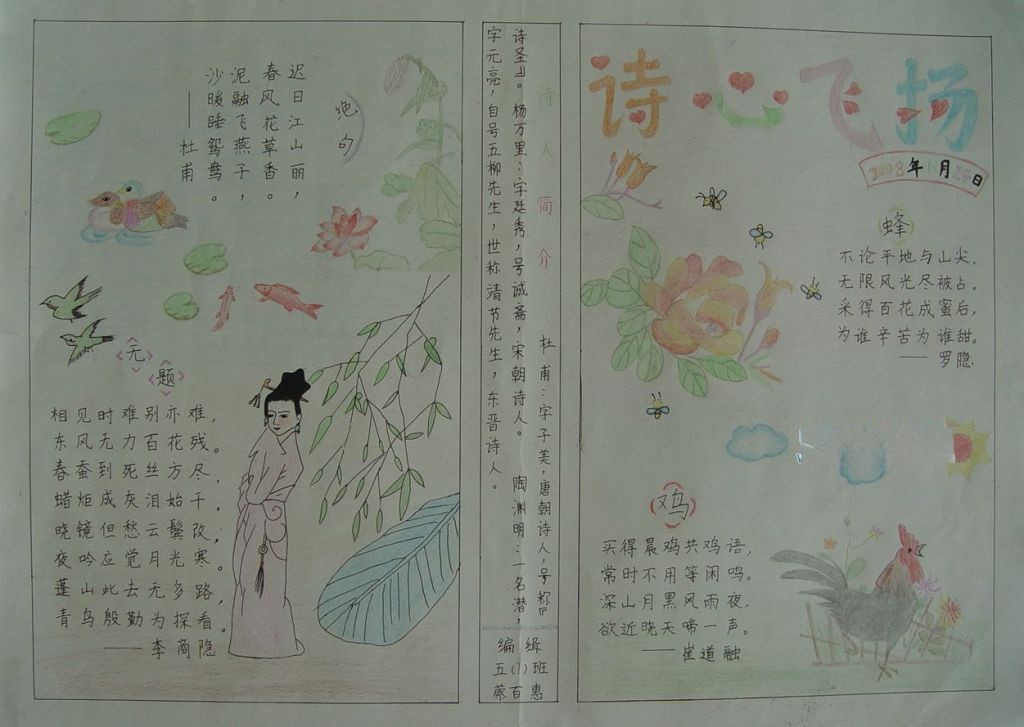 绝句
迟日江山丽，
春风花草香。
泥融飞燕子，
沙暖睡鸳鸯。
——杜甫
无题
相见时难别亦难，
东风无力百花残。
春蚕到死丝方尽，
蜡炬成灰泪始干。
晓镜但愁云鬓改，
夜吟应觉月光寒。
蓬山此去无多路，
青鸟殷勤为探看。
——李商隐
诗人简介
杜甫：字子美，唐朝诗人，号称“
诗圣”。杨万里：字廷秀，号诚斋，宋朝诗人。陶渊明：一名潜，
字元亮，自号五柳先生，世称清节先生，东晋诗人。
编辑
五(1)班
蔡百惠
诗心飞扬
2008年月日
蜂
不论平地与山尖，
无限风光尽被占。
采得百花成蜜后，
为谁辛苦为谁甜。
——罗隐
鸡
买得晨鸡共鸡语，
常时不用等闲鸣。
深山月黑风雨夜，
欲近晓天啼一声。
——崔道融